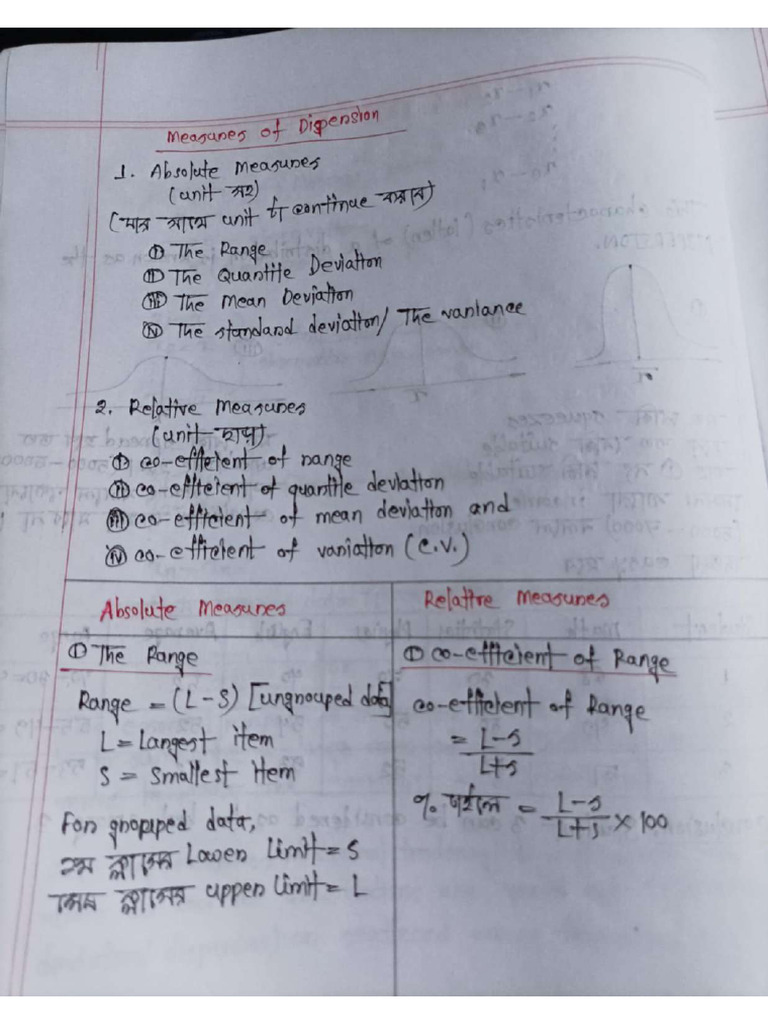 Measures of Dispersion
1. Absolute Measures
(unit সহ)
(যার সাথে unit টা continue করবে)
(i) The Range
(ii) The Quantile Deviation
(iii) The Mean Deviation
(iv) The standard deviation/ The variance
2. Relative Measures
(unit ছাড়া)
(i) co-efficient of range
(ii) co-efficient of quantile deviation
(iii) co-efficient of mean deviation and
(iv) co-efficient of variation (c.v.)
Absolute Measures
(i) The Range
Range = (L-S) [ungrouped data]
L = Largest item
S = Smallest item
For grouped data,
১ম ক্লাসের Lower limit = S
শেষ ক্লাসের upper limit = L
Relative Measures
(i) co-efficient of Range
co-efficient of Range
= L-S / L+S
% = L-S / L+S × 100